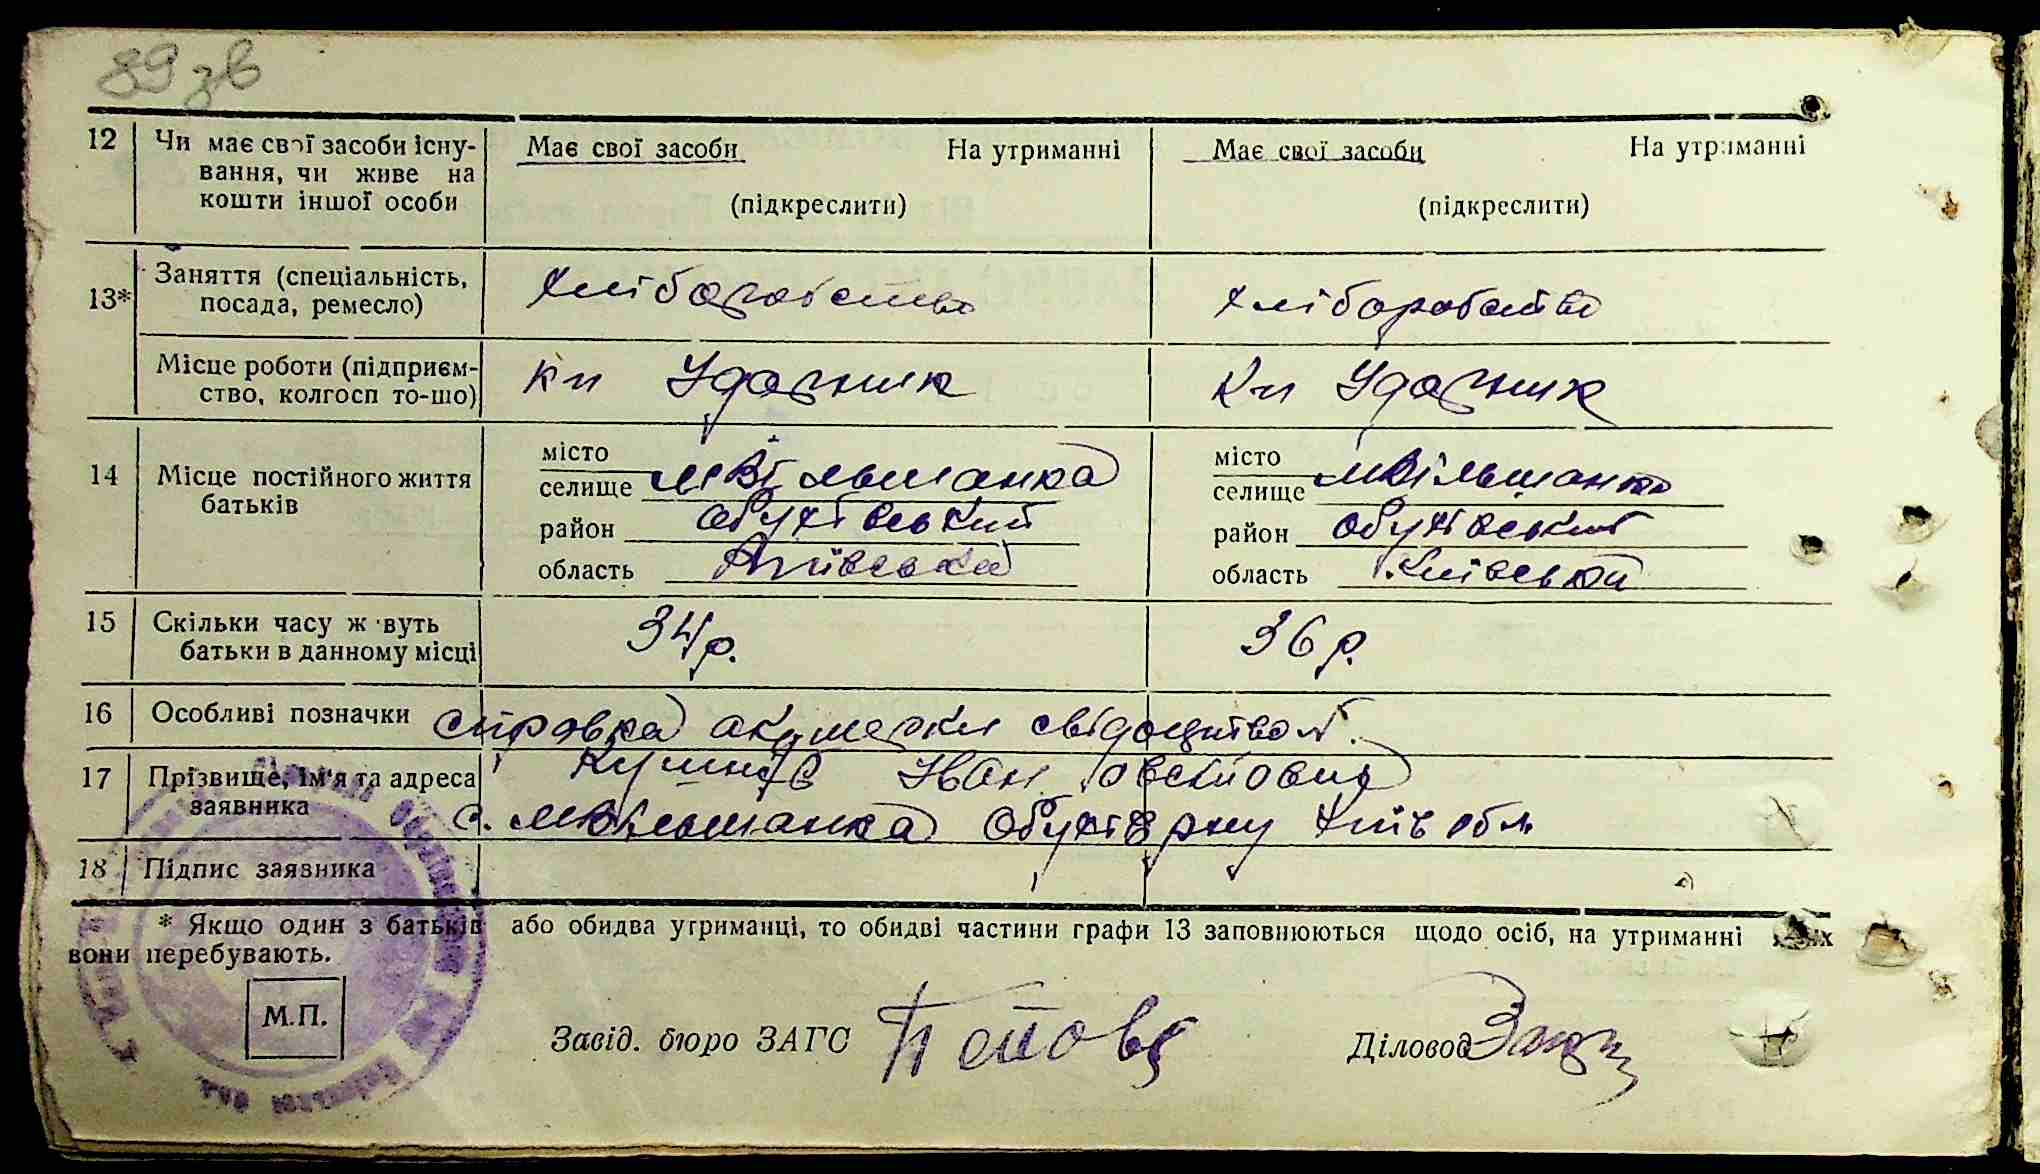 89 зв
12 Чи має свої засоби існування, чи живе на кошти іншої особи
Має свої засоби На утриманні
(підкреслити)
Має свої засоби На утриманні
(підкреслити)
13* Заняття (спеціальність, посада, ремесло)
хліборобство
хліборобство
Місце роботи (підприємство, колгосп то-що)
Кп Ударник
Кп Ударник
14 Місце постійного життя батьків
місто
селище м Вільшанка
район Обухівський
область Київська
місто
селище м Вільшанка
район Обухівський
область Київська
15 Скільки часу ж вуть батьки в данному місці
34 р.
36 р.
16 Особливі позначки справка акушерки
17 Прізвище, ім'я та адреса заявника
Іван
с. м Вільшанка Обухів рну Київ обл
18 Підпис заявника
* Якщо один з батьків або обидва утриманці, то обидві частини графи 13 заповнюються щодо осіб, на утриманні яких
вони перебувають.
М.П.
Завід. бюро ЗАГС
Діловод